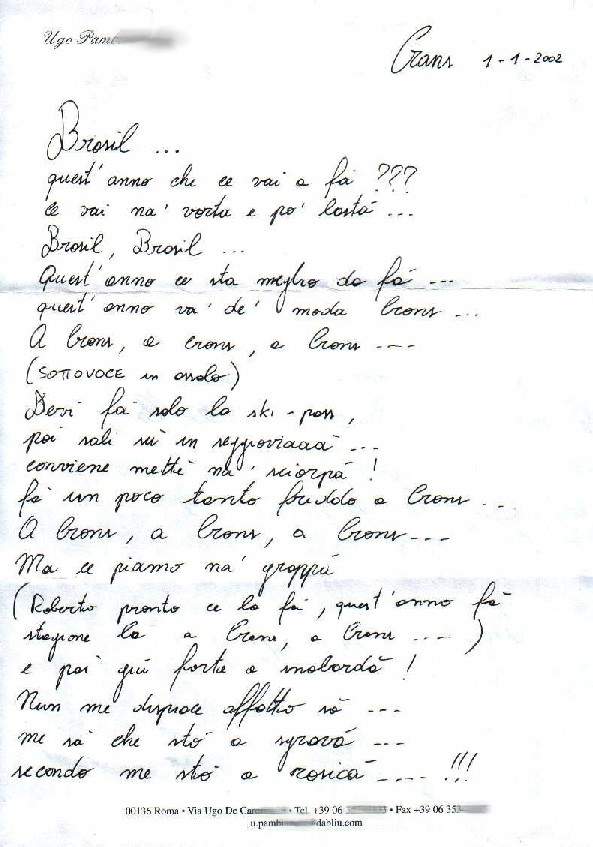 Ugo Pamb
Crans 1-1-2002
Brasil ...
quest'anno che ce vai a fá ???
Ce vai na' vorta e po' bastá ...
Brasil, Brasil ...
Quest'anno ce sta meglio da fá ...
quest'anno va' de' moda Crans ...
A Crans, a Crans, a Crans ....
(SOTTOVOCE in)
Devi fá solo lo ski-pass,
poi sali sú in seggioviaaaá ...
conviene mette na' sciarpá!
fá un poco tanto freddo a Crans ...
A Crans, a Crans, a Crans ...
Ma ce piamo na' grappá
(Roberto pronto ce la fá, quest'anno fá
stagione la a Crans, a Crans ....)
e poi giú forte a snobordá!
Nun me dispiace affatto sá ...
me sá che stó a sprová ...
secondo me stó a rosicá .... !!!
00136 Roma • Via Ugo De Car • Tel. +39 06 • Fax +39 06 353
u.pamb dabliu.com